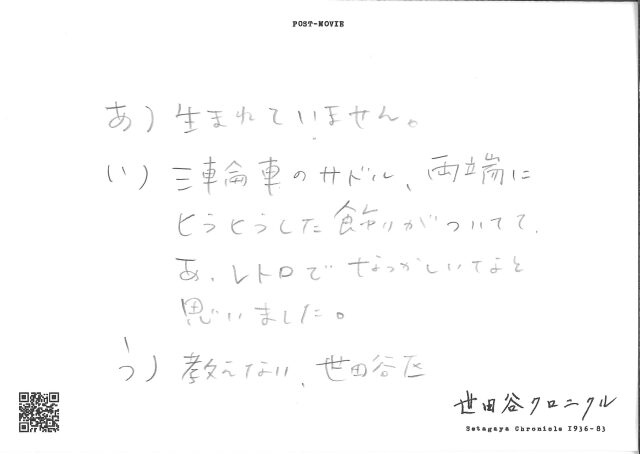 POST-MOVIE
あ）生まれていません。
い）三車侖車のサドル、両端に
ヒラヒラした飾りがついてて、
あ、レトロでなつかしいなと
思いました。
う）教えない、世田谷区
世田谷クロニクル
Setagaya Chronicle 1936-83